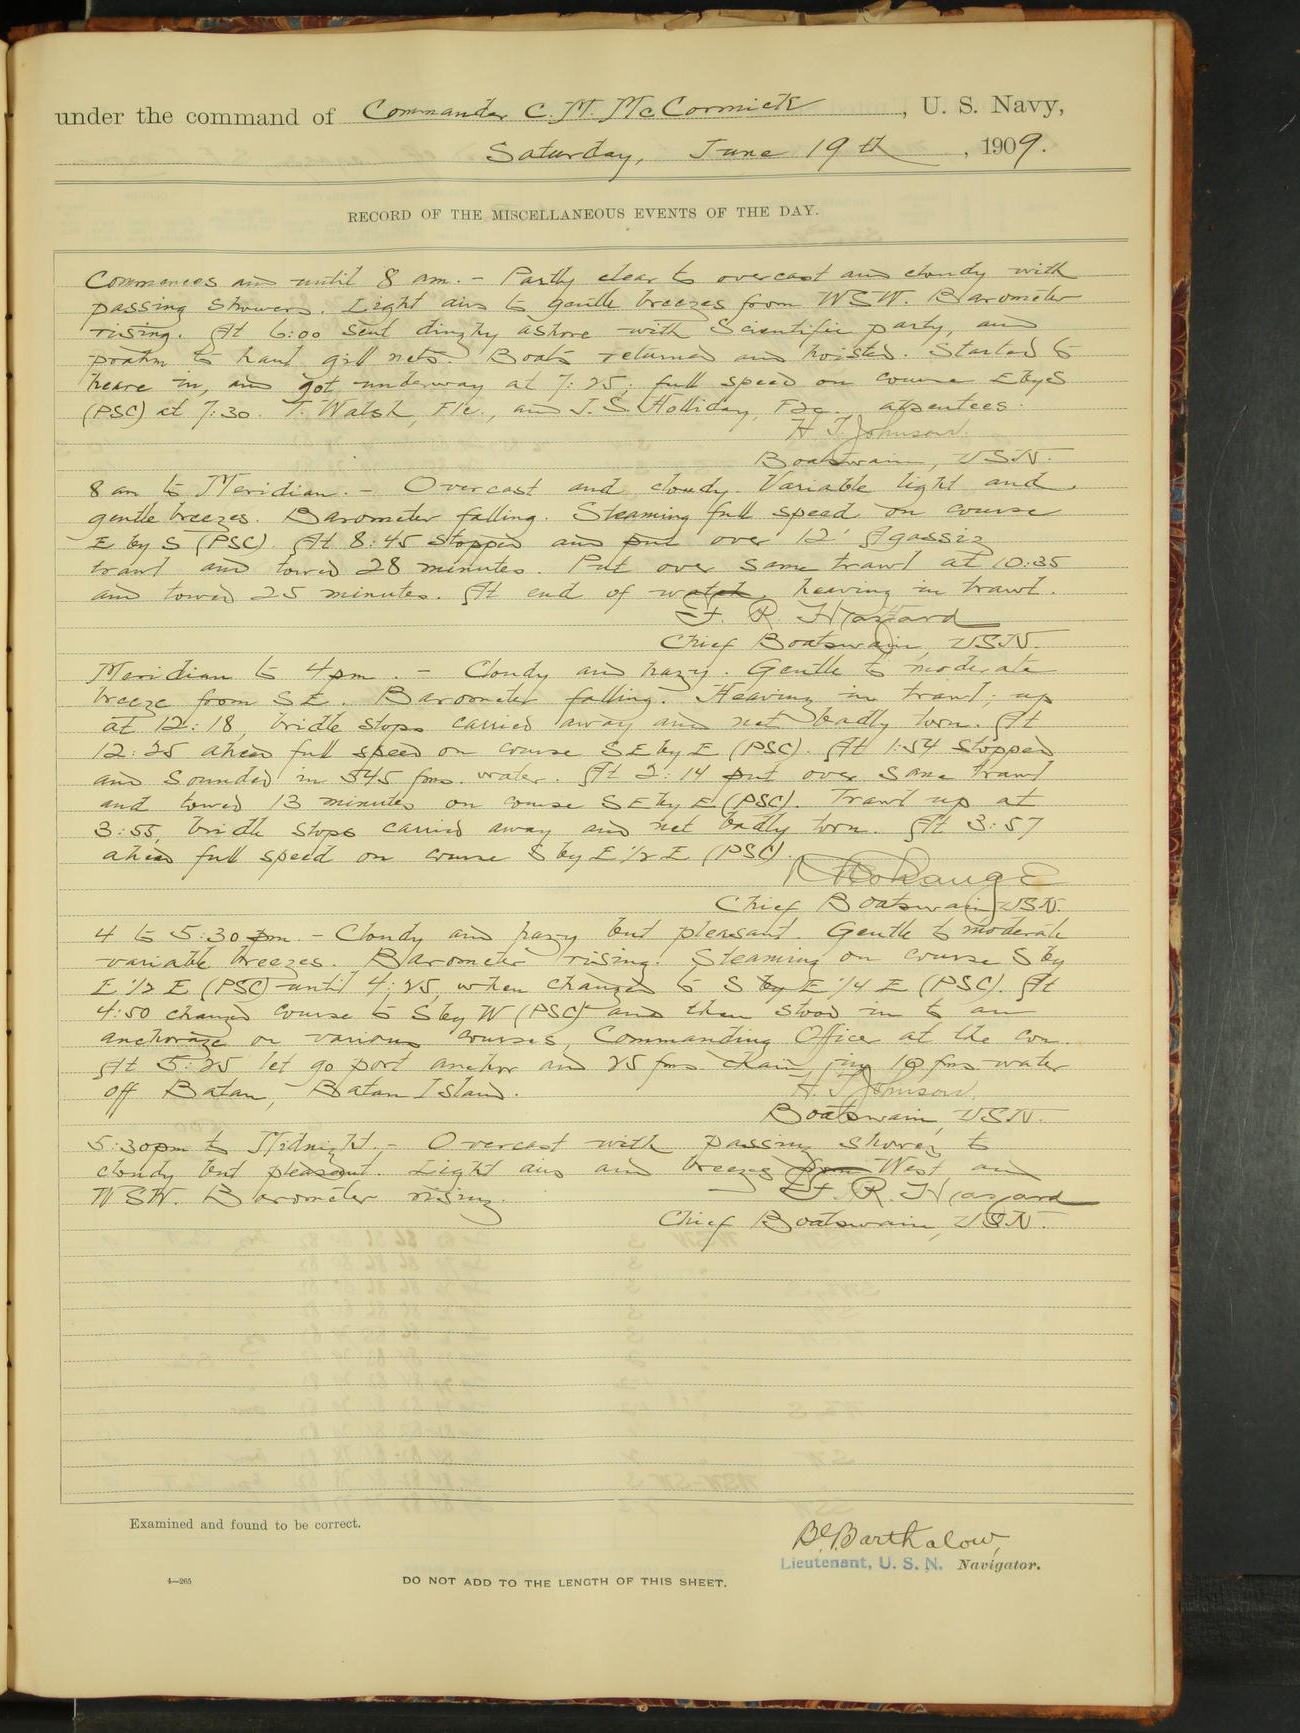 under the command of Commander C. M. McCormick, U. S. Navy,
Saturday, June 19th, 1909.
RECORD OF THE MISCELLANEOUS EVENTS OF THE DAY.
Commences and until 8 am. - Partly clear to overcast and cloudy with
passing showers. Light airs to gentle breezes from WSW. Barometer
rising. At 6:00 sent dinghy ashore with Scientific party, and
to haul gill nets. Boats returned and hoisted. Started to
heave in, and got underway at 7:25; full speed on course E by S
(PSC) at 7:30. T. Walsh, F1c., and J. S. Holliday, F2c., absentees.
H. T. Johnson.
Boatswain, USN.
8 am to Meridian. - Overcast and cloudy. Variable light and
gentle breezes. Barometer falling. Steaming full speed on course
E by S (PSC). At 8:45 stopped and put over 12' Agassiz
trawl and towed 28 minutes. Put over same trawl at 10:35
and towed 25 minutes. At end of watch, heaving in trawl.
F. R. Hazard
Chief Boatswain, USN.
Meridian to 4 pm. - Cloudy and hazy. Gentle to moderate
breeze from SE. Barometer falling. Heaving in trawl; up
at 12:18, bridle stops carried away and net badly torn. At
12:25 ahead full speed on course SE by E (PSC). At 1:54 stopped
and sounded in 545 fms. water. At 2:14 put over same trawl
and towed 13 minutes on course SE by E (PSC). Trawl up at
3:55, bridle stops carried away and net badly torn. At 3:57
ahead full speed on course S by E 1/2 E (PSC).
Chief Boatswain USN.
4 to 5:30 pm. - Cloudy and hazy but pleasant. Gentle to moderate
variable breezes. Barometer rising. Steaming on course S by
E 1/2 E (PSC) until 4:25, when changed to S by E 1/4 E (PSC). At
4:50 changed course to S by W (PSC) and then stood in to an
anchorage on various courses, Commanding Officer at the con.
At 5:25 let go port anchor and 25 fms. chain, in 18 fms water
off Batan, Batan Island.
H. T. Johnson.
Boatswain, USN.
5:30 pm to Midnight. - Overcast with passing showers to
cloudy but pleasant. Light airs and breezes from West and
WSW. Barometer rising.
F. R. Hazard
Chief Boatswain, USN.
Examined and found to be correct.
Barthalow,
Lieutenant, U. S. N. Navigator.
4—265
DO NOT ADD TO THE LENGTH OF THIS SHEET.